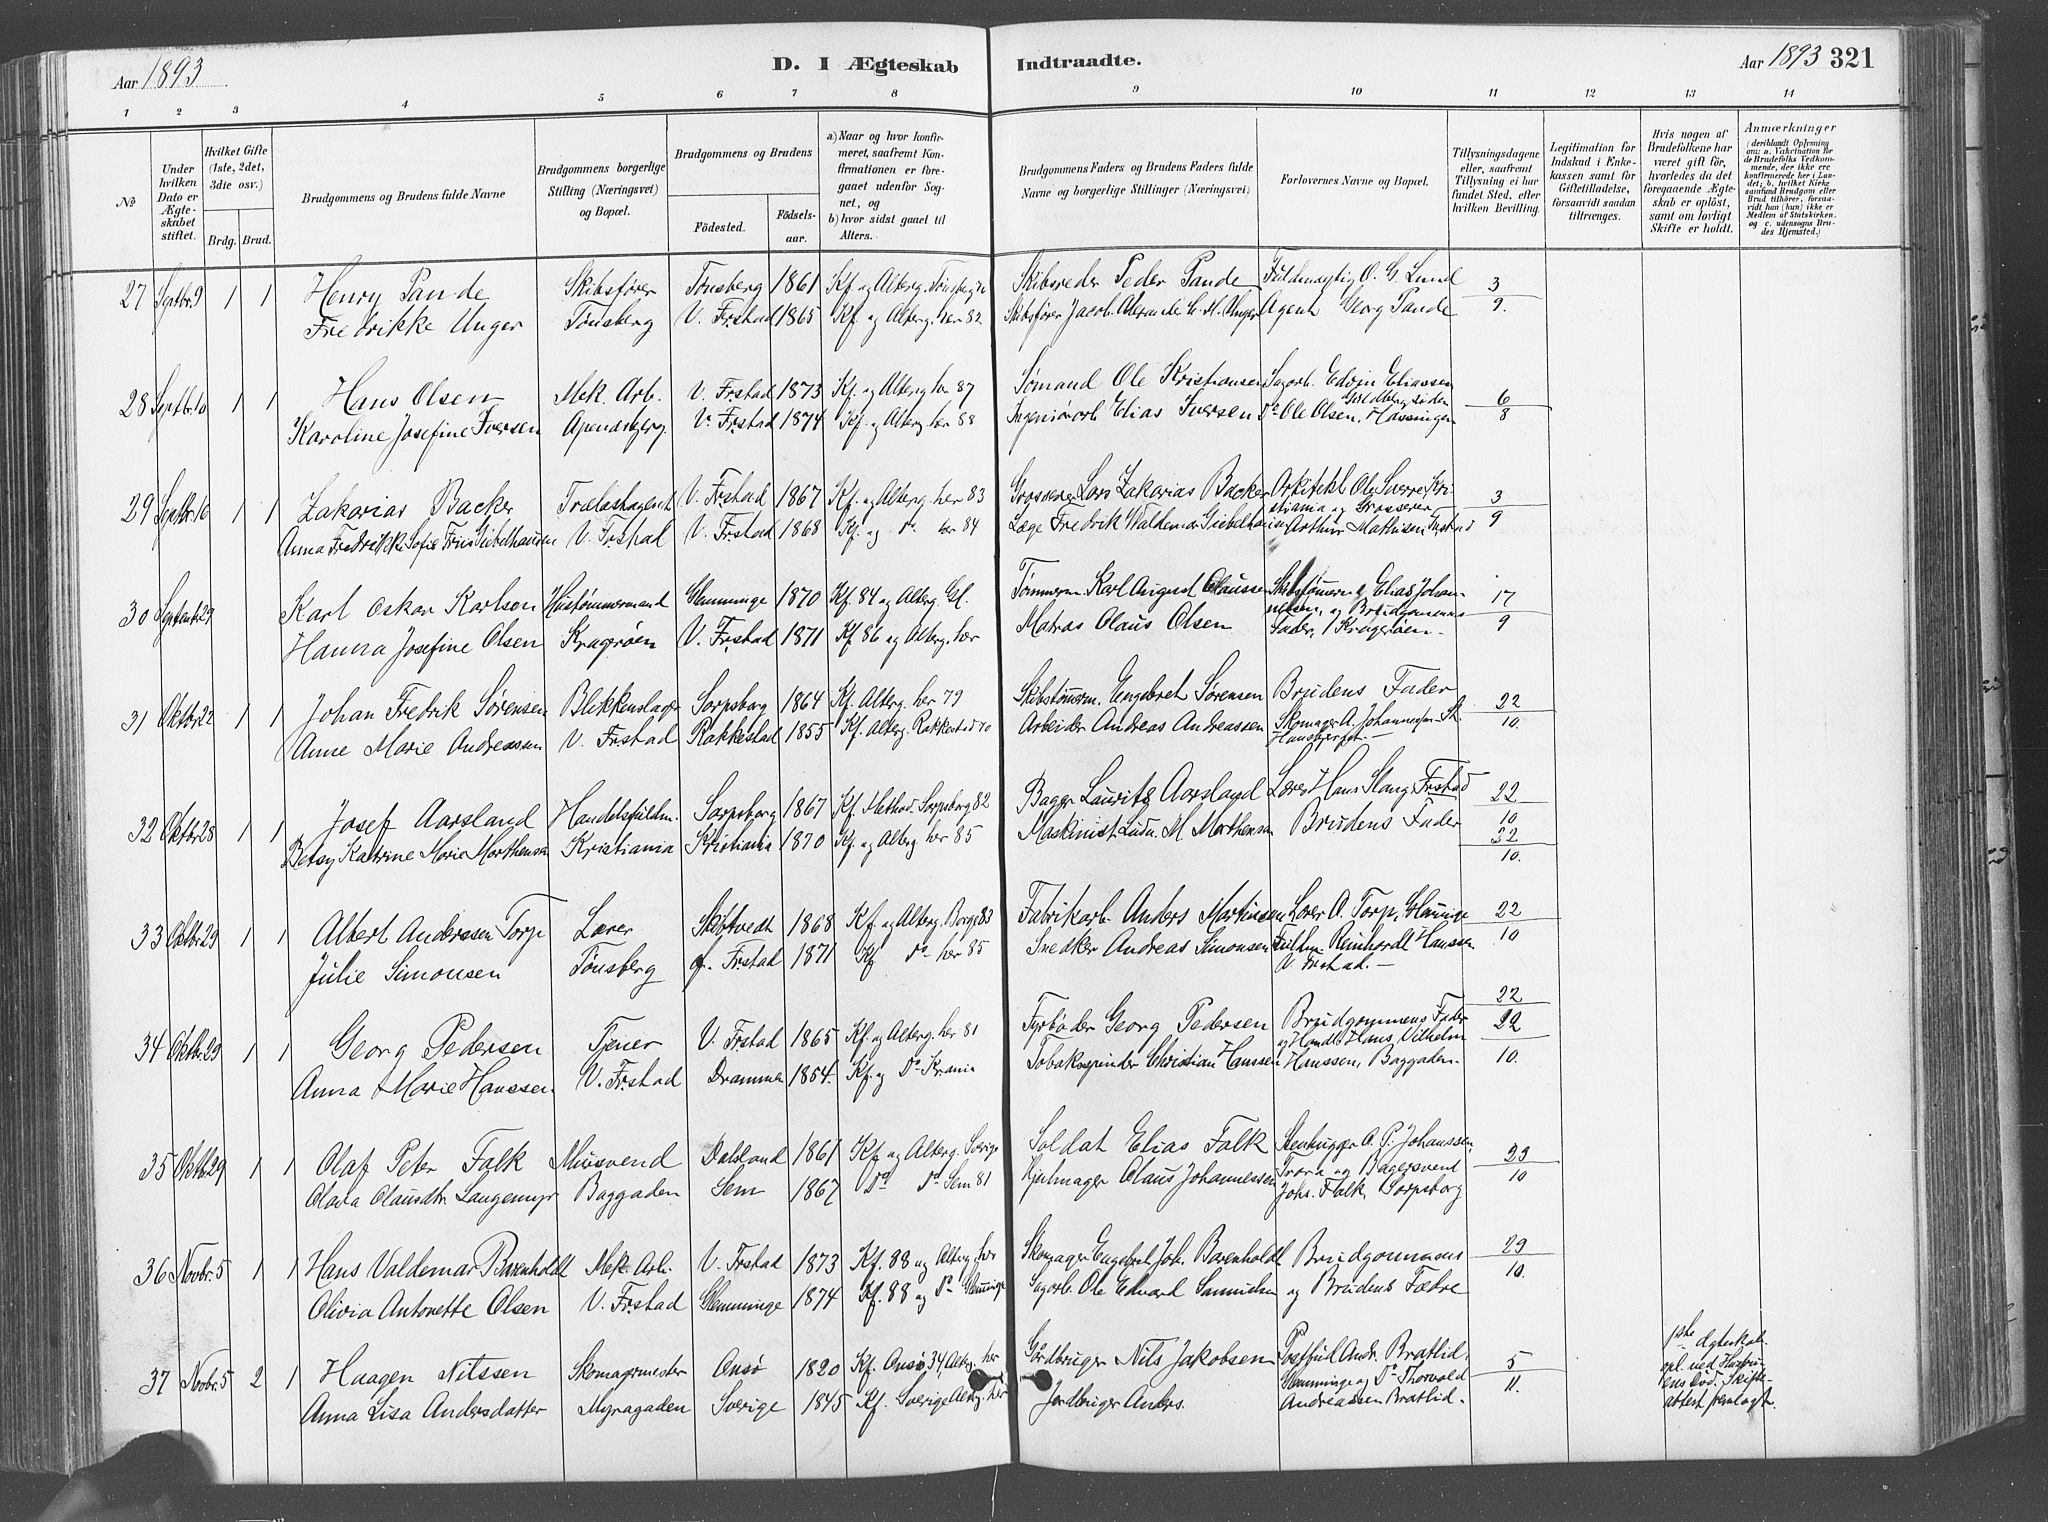 Aar 1893
D. I Ægteskab
Indtraadte.
Aar 1893 321
1 2 3 4 5 6 7 8 9 10 11 12 13 14
No
Under hvilken Dato er Ægteskabet stiftet.
Hvilket Gifte (1ste, 2det, 3die osv.)
Brdg. Brud.
Brudgommens og Brudens fulde Navne
Brudgommens borgerlige Stilling (Næringsvei) og Bopæl.
Brudgommens og Brudens
Fødested.
Fødselsaar.
a) Naar og hvor konfirmeret, saafremt Konfirmationen er foregaaet udenfor Sognet, og
b) hvor sidst gaaet til Alters.
Brudgommens Faders og Brudens Faders fulde Navne og borgerlige Stillinger (Næringsvei)
Forlovernes Navne og Bopæl.
Tillysningsdagene eller, saafremt Tillysning ei har fundet Sted, efter hvilken Bevilling.
Legitimation for Indskud i Enkekassen samt for Giftetilladelse, forsaavidt saadan tiltrænges.
Hvis nogen af Brudefolkene har været gift før, hvorledes da det foregaaende Ægteskab er opløst, samt om lovligt Skifte er holdt.
Anmærkninger
(deriblandt Oplysning om: a. Vakcination for de Brudefolks Vedkommende, der ikke ere konfirmerede her i Landet; b. hvilket Kirkesamfund Brudgom eller Brud tilhører, forsaavidt han (hun) ikke er Medlem af Statskirken. og c. udensogns Brudes Hjemsted.)
27 Septbr. 9 1 1 Henry Pande Skibsfører Tønsberg 1861 Kf. og Alterg. Tønsberg Skibsreder Peder Pande Fuldmægtig O. G. Lund 3
Fredrikke Unger Tønsberg V. Frstad 1865 Kf. og Alterg. her 82 Skibsfører Jacob Unger Agent Georg Pande 9.
28 Septbr. 10 1 1 Hans Olsen Mek. Arb. V. Frstad 1873 Kf. og Alterg. her 87 Sømand Ole Kristiansen Sagarb. Edvin Eliassen 6
Karoline Josefine Iversen Apenæsbjerg. V. Frstad 1874 Kf. og Alterg. her 88 Elias Iversen Do Ole Olsen, Hassingen 8
29 Septbr. 10 1 1 Zakarias Backer Trælasthagent V. Frstad 1867 Kf. og Alterg. her 83 Grosserer Lars Zakarias Backer Arkitekt Ole Sverre, Kri- 3
Anna Fredrikke Sofie Friis Giebelhausen V. Frstad V. Frstad 1868 Kf. og Do her 84 Læge Fredrik Waldemar Giebelhausen stiania og Grosserer Arthur Mathisen Frstad 9
30 Septembr. 29 1 1 Karl Oskar Karlsen Hustømmermand Glemminge 1870 Kf. 84 og Alterg. Gl. Tømmerm. Karl August Claussen Skibstømerm. Elias Johan- 17
Hanna Josefine Olsen Kragrøen V. Frstad 1871 Kf. 86 og Alterg. her Matros Olaus Olsen nesen, og Brudgommens Fader, Kragerøen 9
31 Oktbr. 22 1 1 Johan Fredrik Sørensen Blikkenslager Sarpsborg 1864 Kf. Alterg. her 79 Skibstømerm. Engebret Sørensen Brudens Fader 22
Anne Marie Andreassen V. Frstad Rakkestad 1855 Kf. Alterg. Rakkestad 70 Arbeider Andreas Andreassen Skomager A. Johannesen St. Hansbjerget. 10.
32 Oktbr. 28 1 1 Josef Aarsland Handelsfuldm. Sarpsborg 1867 Kf. Method. Sarpsborg 82 Bager Laurits Aarsland Lærer Hans Stang Frstad 22 10
Betsy Katrine Marie Morthensen Kristiania Kristiania 1870 Kf. og Alterg. her 85 Maskinist Ludv. M. Morthensen Brudens Fader 22 10.
33 Oktbr. 29 1 1 Albert Andersen Torp Lærer Skibtvedt 1868 Kf. og Alterg. Borge 83 Fabrikarb. Anders Martinsen Lærer A. Torp, Glemminge 22
Julie Simonsen Tønsberg Frstad 1871 Kf. Do her 85 Snedker Andreas Simonsen Reinhardt Hanssen V. Frstad. 10
34 Oktbr. 29 1 1 Georg Pedersen Tjener V. Frstad 1865 Kf. og Alterg. her 81 Fyrbøder Georg Pedersen Brudgommens Fader 22 22
Anna Marie Hanssen V. Frstad Drammen 1854. Kf. og Do Krania Tobakspinder Christian Hanssen og Handl. Hans Vilhelm Hanssen, Baggaden. 10.
35 Oktbr. 29 1 1 Olaf Peter Falk Musvend Dalsland 1861 Kf. og Alterg. Sverige Soldat Elias Falk Stenhugger A. P. Johanssen 29
Olava Olausdtr. Langemyr Baggaden Sem 1867 Do Do Sem 81 Hjulmager Olaus Johannessen Trara og Bagersvend Johs. Falk, Sarpsborg 10
36 Novbr. 5 1 1 Hans Valdemar Barenholdt Mek. Arb. V. Frstad 1873 Kf. 88 og Alterg. her Skomager Engebret Joh. Barenholdt Brudgommens 29
Olivia Antonette Olsen V. Frstad Glemminge 1874 Kf. 88 og Do Glemminge Sagarb. Ole Edvard Samuelsen og Brudens Fædre 10.
37 Novbr. 5 2 1 Haagen Nilssen Skomagermester Onsø 1820 Kf. Onsø 34, Alterg. her Gårdbruger Nils Jakobsen Postbud Andr. Bratlid, 5
Anna Lisa Andersdatter Myragaden Sverige 1845 Kf. Sverige Alterg. her Jordbruger Anders. Glemminge og Do Thorvald Andreassen Bratlid. 11.
1ste Ægteskab opl. ved Hustruens Død. Skifteattest fremlagt.